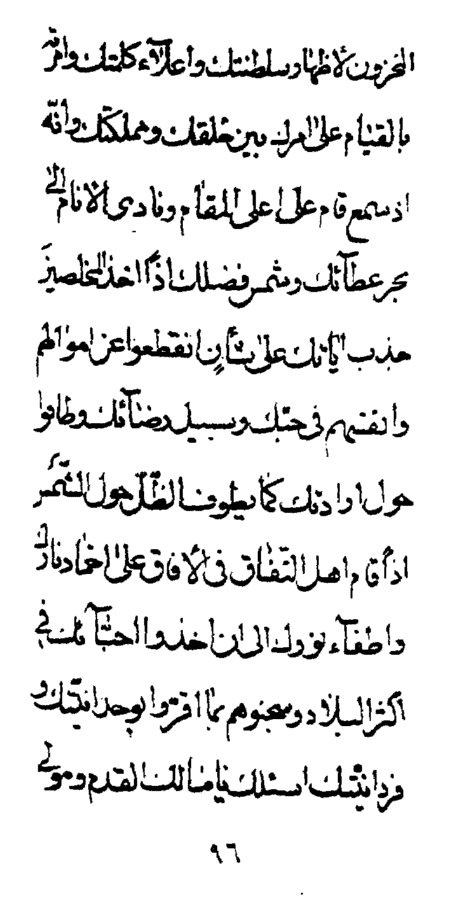 المخزون لاظهار سلطنتك و اعلاء كلمتك و امرته
بالقيام على امرك بين خلقك و مملكتك و انّه
اذ سمع قام على اعلى المقام و نادى الانام الى
بحر عطآئك و شمس فضلك اذًا اخذ المخلصين
جذب آياتك على شأن انقطعوا عن اموالهم
و انفسهم فى حبّك و سبيل رضآئك و طافوا
حول ارادتك كما يطوف الظّلّ حول الشّمس
اذًا قام اهل النّفاق فى الآفاق على اخماد نارك
و اطفآء نورك الى ان اخذوا احبّآئك فى
اكثر البلاد و سجنوهم بما اقرّوا بوحدانيّتك و
فردانيّتك اسئلك يا مالك القدم و مولى
٩٦